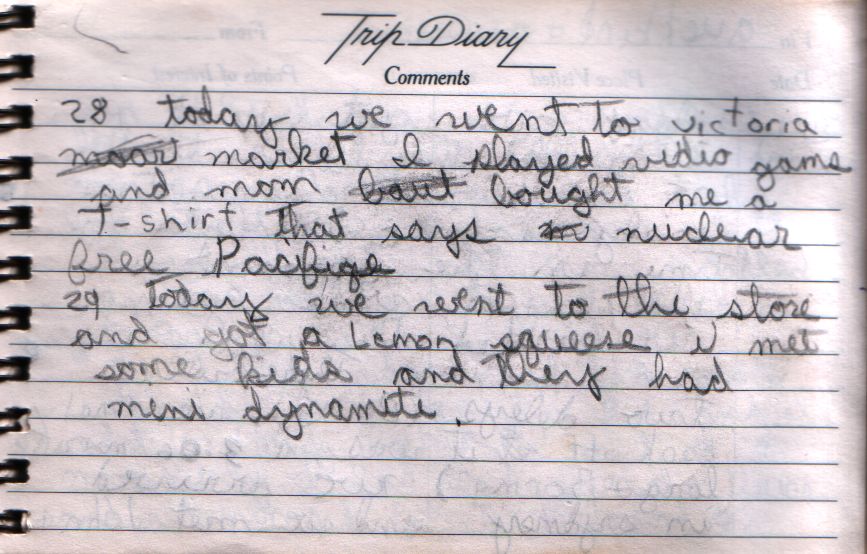 Trip Diary
Comments
28 today we went to victoria
market I played vidio game
and mom bought me a
T-shirt that says nuclear
free Pacifiqe
29 Today we went to the store
and got a Lemon squeese i met
some kids and they had
meni dynamite.